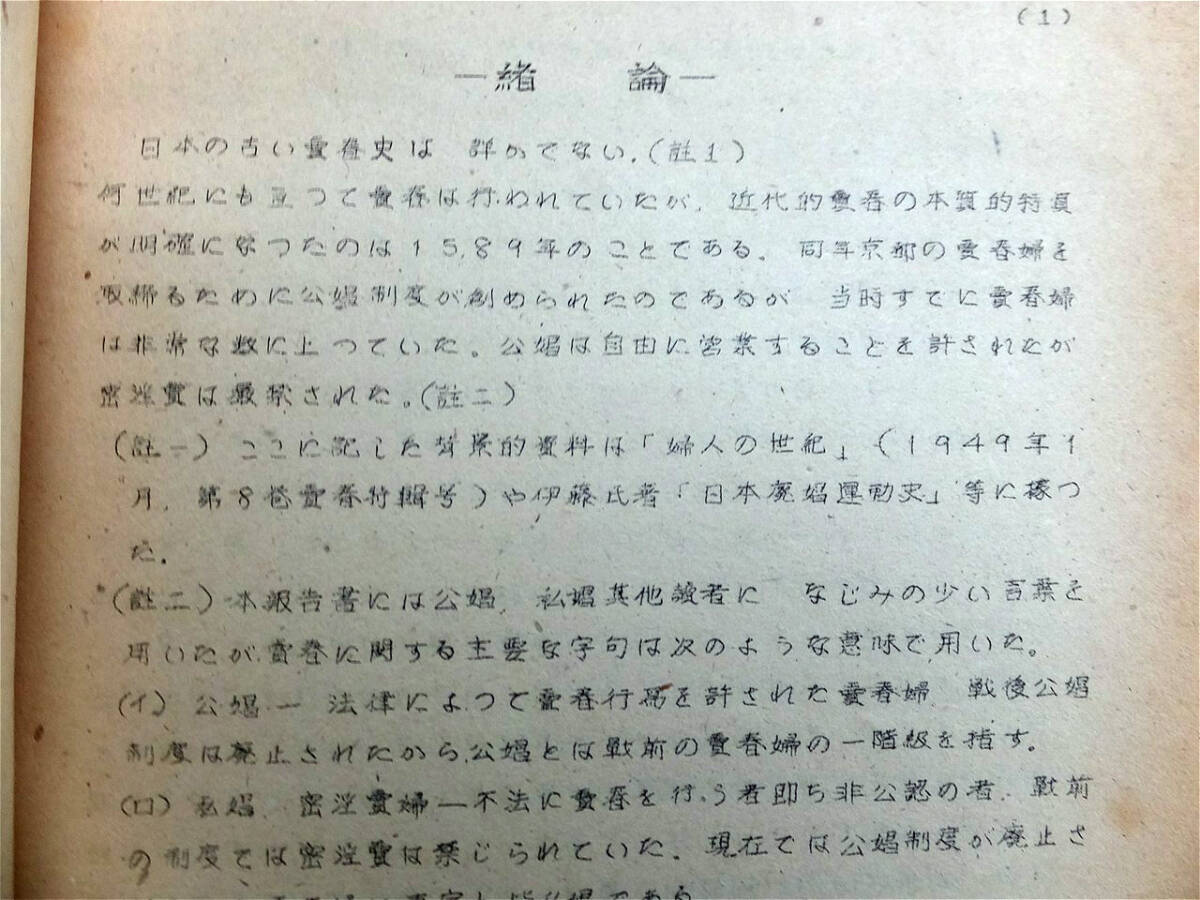 (1)
―緒 論―
日本の古い賣春史は 詳かでない.(註1)
何世紀にも亘つて賣春は行われていたが、近代的賣春の本質的特質
が明確になつたのは1589年のことである、同年京都の賣春婦を
取締るために公娼制度が創められたのであるが 当時すでに賣春婦
は非常な数に上つていた。公娼は自由に営業することを許されたが
密淫賣は厳禁された。(註二)
(註一)ここに記した背景的資料は「婦人の世紀」(1949年1
月、第8巻賣春特輯号)や伊藤氏著「日本廃娼運動史」等に據つ
た.
(註二)本報告書には公娼、私娼其他讀者に なじみの少い言葉を
用いたが賣春に関する主要な字句は次のような意味で用いた。
(イ)公娼― 法律によつて賣春行爲を許された賣春婦 戦後公娼
制度は廃止されたから、公娼とは戰前の賣春婦の一階級を指す。
(ロ)私娼、密淫賣婦―不法に賣春を行う者即ち非公認の者、戰前
の制度では密淫賣は禁じられていた、現在では公娼制度が廃止さ
である